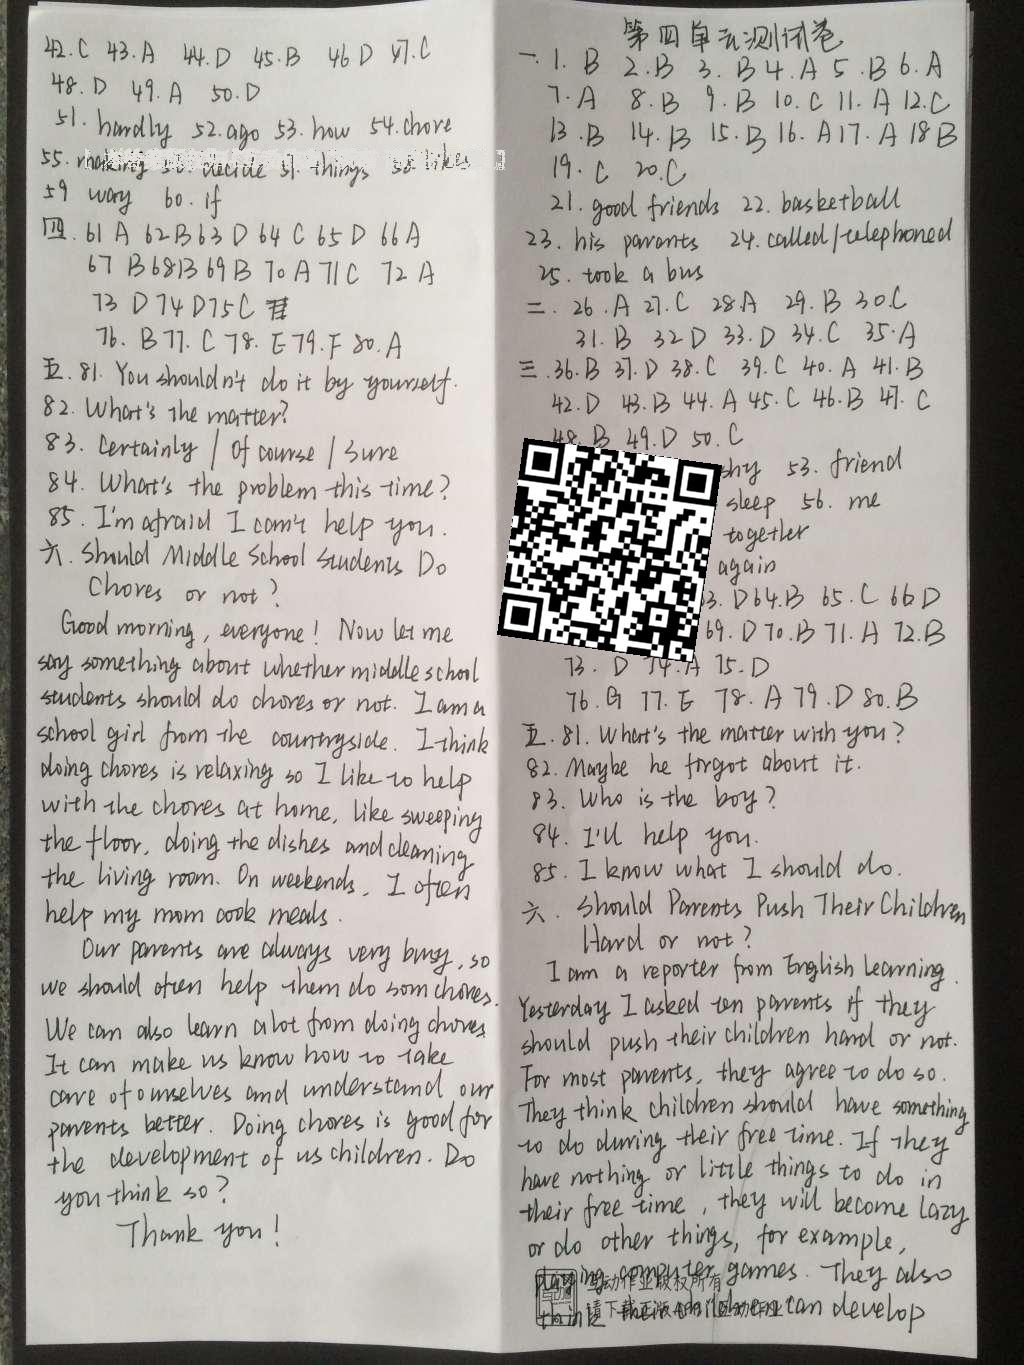 42.C 43.A 44.D 45.B 46 D 47.C
48.D 49.A 50.D
51. hardly 52.ago 53.how 54.chore
55. making 56. decide 57. things 58. likes
59 way 60. if
四. 61 A 62 B 63 D 64 C 65 D 66 A
67 B 68 B 69 B 70 A 71 C 72 A
73 D 74 D 75 C
76. B 77. C 78. E 79. F 80. A
五. 81. You shouldn't do it by yourself.
82. What's the matter?
83. Certainly / Of course / Sure
84. What's the problem this time?
85. I'm afraid I can't help you.
六. Should Middle School Students Do
Chores or not?
Good morning, everyone! Now let me
say something about whether middle school
students should do chores or not. I am a
school girl from the countryside. I think
doing chores is relaxing so I like to help
with the chores at home, like sweeping
the floor, doing the dishes and cleaning
the living room. On weekends, I often
help my mom cook meals.
Our parents are always very busy, so
we should often help them do som chores.
We can also learn a lot from doing chores.
It can make us know how to take
care of ourselves and understand our
parents better. Doing chores is good for
the development of us children. Do
you think so?
Thank you!
第四单元测试卷
一. 1. B 2. B 3. B 4. A 5. B 6. A
7. A 8. B 9. B 10. C 11. A 12. C
13. B 14. B 15. B 16. A 17. A 18 B
19. C 20. C
21. good friends 22. basketball
23. his parents 24. called/telephoned
25. took a bus
二. 26. A 27. C 28. A 29. B 30. C
31. B 32 D 33. D 34. C 35. A
三. 36. B 37. D 38. C 39. C 40. A 41. B
42. D 43. B 44. A 45. C 46. B 47. C
48. B 49. D 50. C
shy 53. friend
sleep 56. me
together
again
63. D 64. B 65. C 66 D
69. D 70. B 71. A 72. B
73. D 74. A 75. D
76. G 77. E 78. A 79. D 80. B
五. 81. What's the matter with you?
82. Maybe he forgot about it.
83. Who is the boy?
84. I'll help you.
85. I know what I should do.
六. Should Parents Push Their Children
Hard or not?
I am a reporter from English Learning.
Yesterday I asked ten parents if they
should push their children hard or not.
For most parents, they agree to do so.
They think children should have something
to do during their free time. If they
have nothing or little things to do in
their free time, they will become lazy
or do other things, for example,
playing computer games. They also
think their children can develop
互动作业版权所有
请下载正版APP“互动作业”